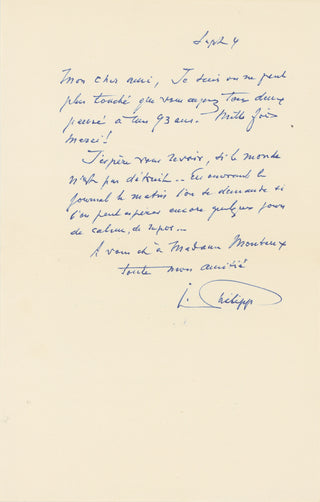 Sept 4
Mon cher ami, Je suis on ne peut
plus touché que vous ayez tous deux
pensé à mes 93 ans. Mille fois
merci!
J'espère vous revoir, si le monde
n'est pas détruit... En ouvrant le
journal le matin l'on se demande si
l'on peut espérer encore quelques jours
de calme, de repos...
A vous et à Madame Monteux
toute mon amitié
I. Philipp